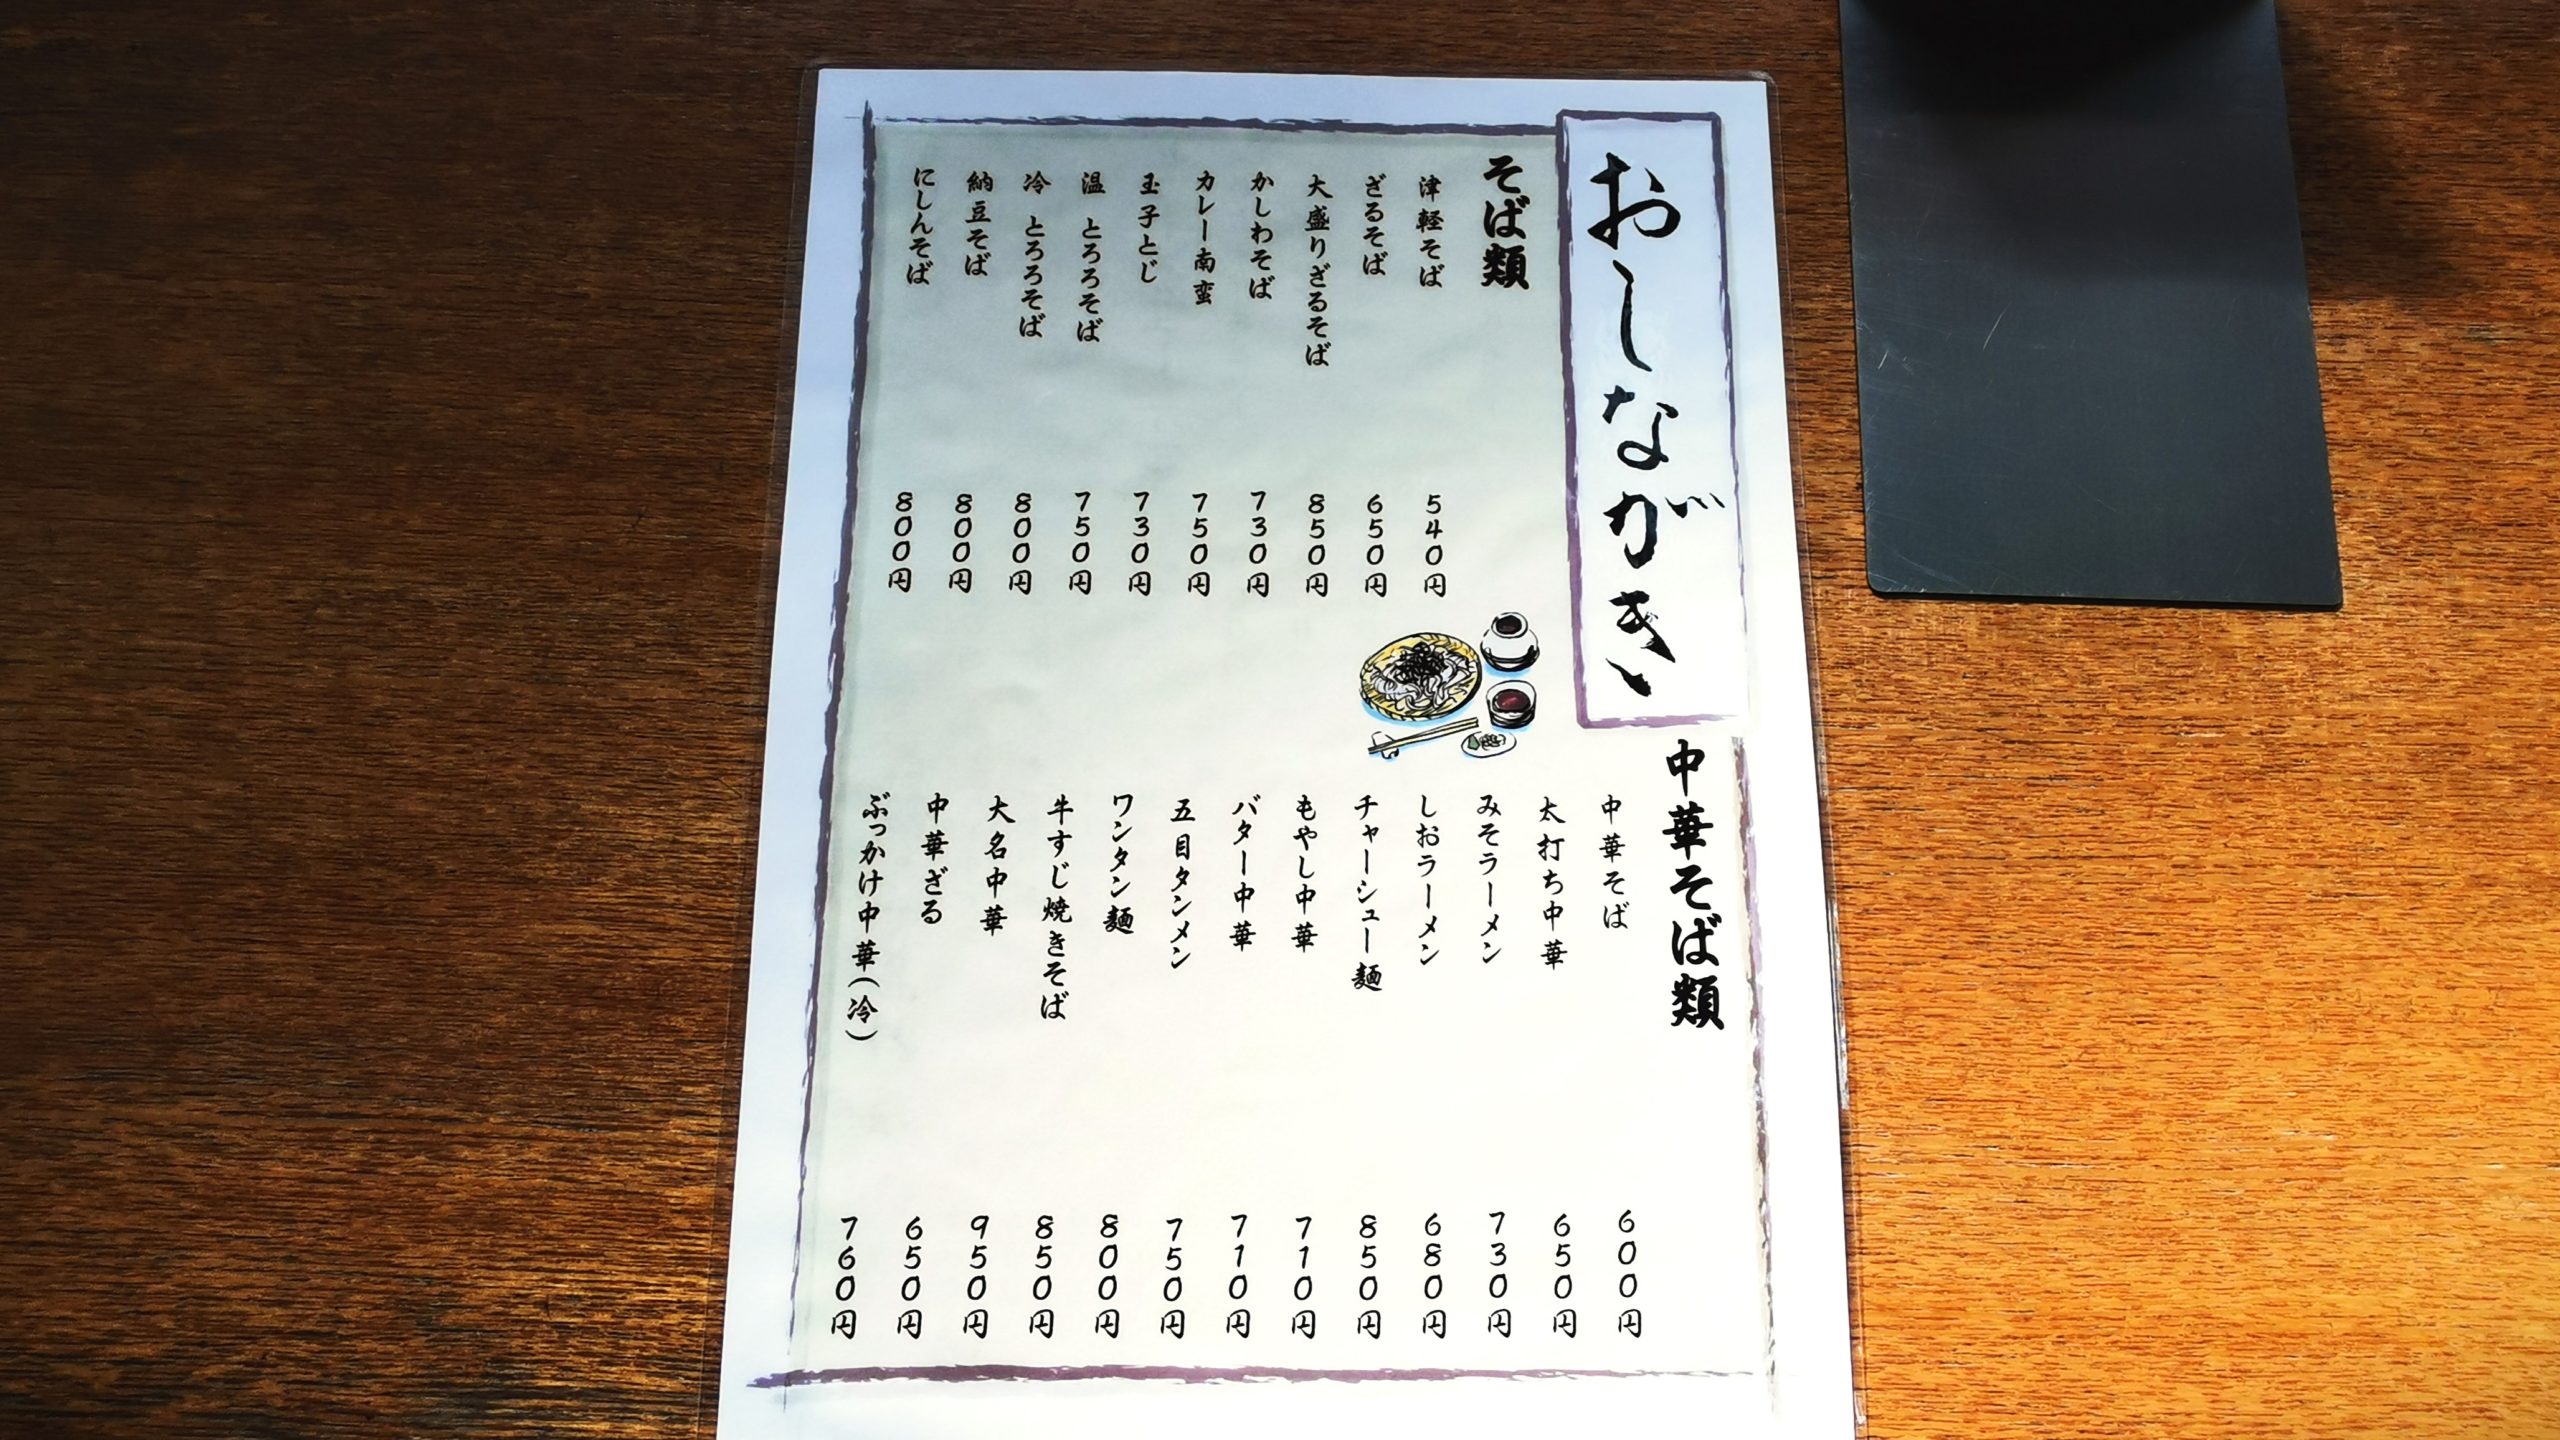 おしながき
そば類
津軽そば 540円
ざるそば 650円
大盛りざるそば 850円
かしわそば 730円
カレー南蛮 750円
玉子とじ 730円
温 とろろそば 750円
冷 とろろそば 800円
納豆そば 800円
にしんそば 800円
中華そば類
中華そば 600円
太打ち中華 650円
みそラーメン 730円
しおラーメン 680円
チャーシュー麺 850円
もやし中華 710円
バター中華 710円
五目タンメン 750円
ワンタン麺 800円
牛すじ焼きそば 850円
大名中華 950円
中華ざる 650円
ぶっかけ中華(冷) 760円